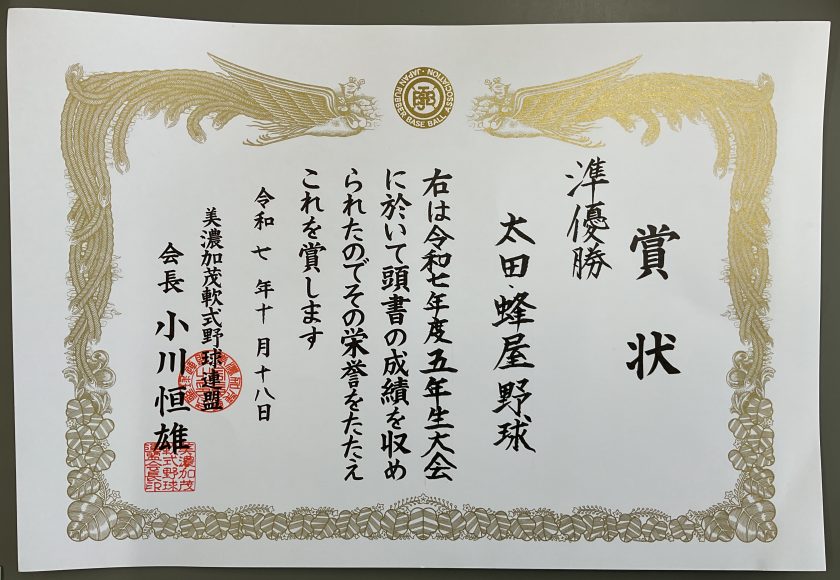 賞状
準優勝
太田・蜂屋野球
右は令和七年度五年生大会
に於いて頭書の成績を収め
られたのでその栄誉をたたえ
これを賞します
令和七年十月十八日
美濃加茂軟式野球連盟
会長 小川恒雄
JAPAN RUBBER BASE BALL ASSOCIATION
美濃加茂
軟式野球
連盟会長印